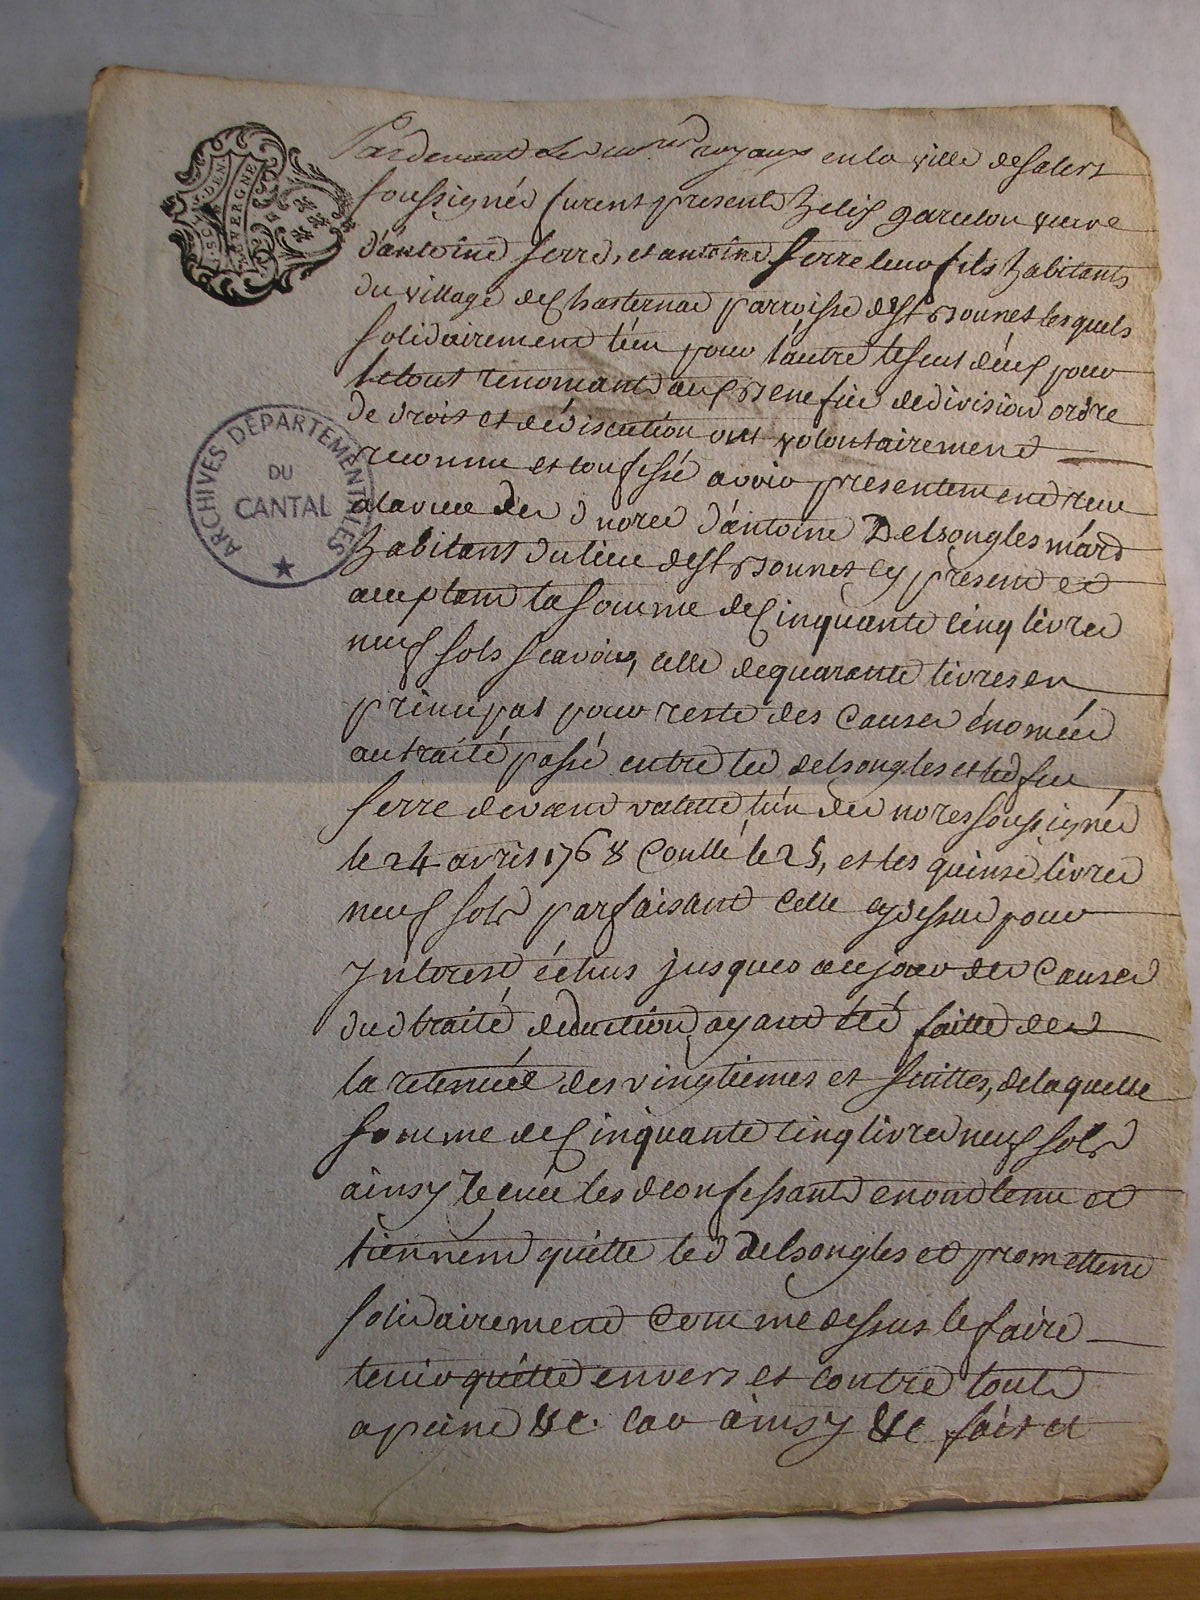 SIX DEN
AUVERGNE
ARCHIVES DÉPARTEMENTALES
DU
CANTAL
Pardevant les nores royaux en la ville de salers
soussignés furent presents helis garcelon veuve
d'antoine serre, et antoine serre leur fils habitants
du village de Chasternac parroisse de st Bonnet lesquels
solidairement l'un pour l'autre le seul d'eux pour
le tout renonçant aux Benefice de division ordre
de droit et de discution ont volontairement
reconnu et confessé avoir presentement reçu
a la vue des d nores d'antoine Delsongles mard
habitant du lieu de st Bonnet cy présent et
acceptant la somme de Cinquante cinq livres
neuf sols scavoir, celle de quarante livres en
principal pour reste des Causes énomées
au traité passé entre led delsongles et led feu
serre devant valette l'un des nores soussignés
le 24 avril 1768 Conllé le 25, et les quinse livres
neuf sols parfaisant Celle cy dessus pour
Interest échus jusques au jour des Causes
dud traité deduction ayant été faitte de
la retenuée des vingtiemes et suittes, de laquelle
somme de Cinquante cinq livres neuf sols
ainsy reçuée les d confessants en ont tenu et
tiennent quitte led delsongles et promettent
solidairement comme dessus le faire
tenir quitte envers et contre touts
a peine &c. car ainsy &c fait et